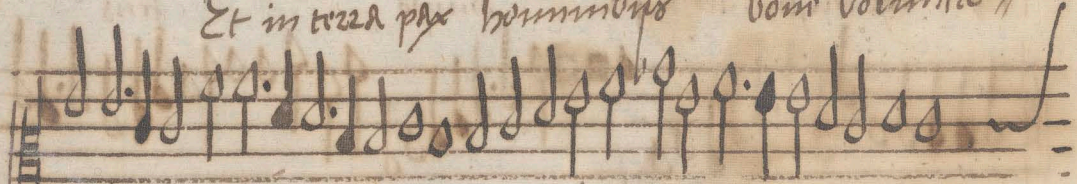 Et in terra pax hominibus bone volunta